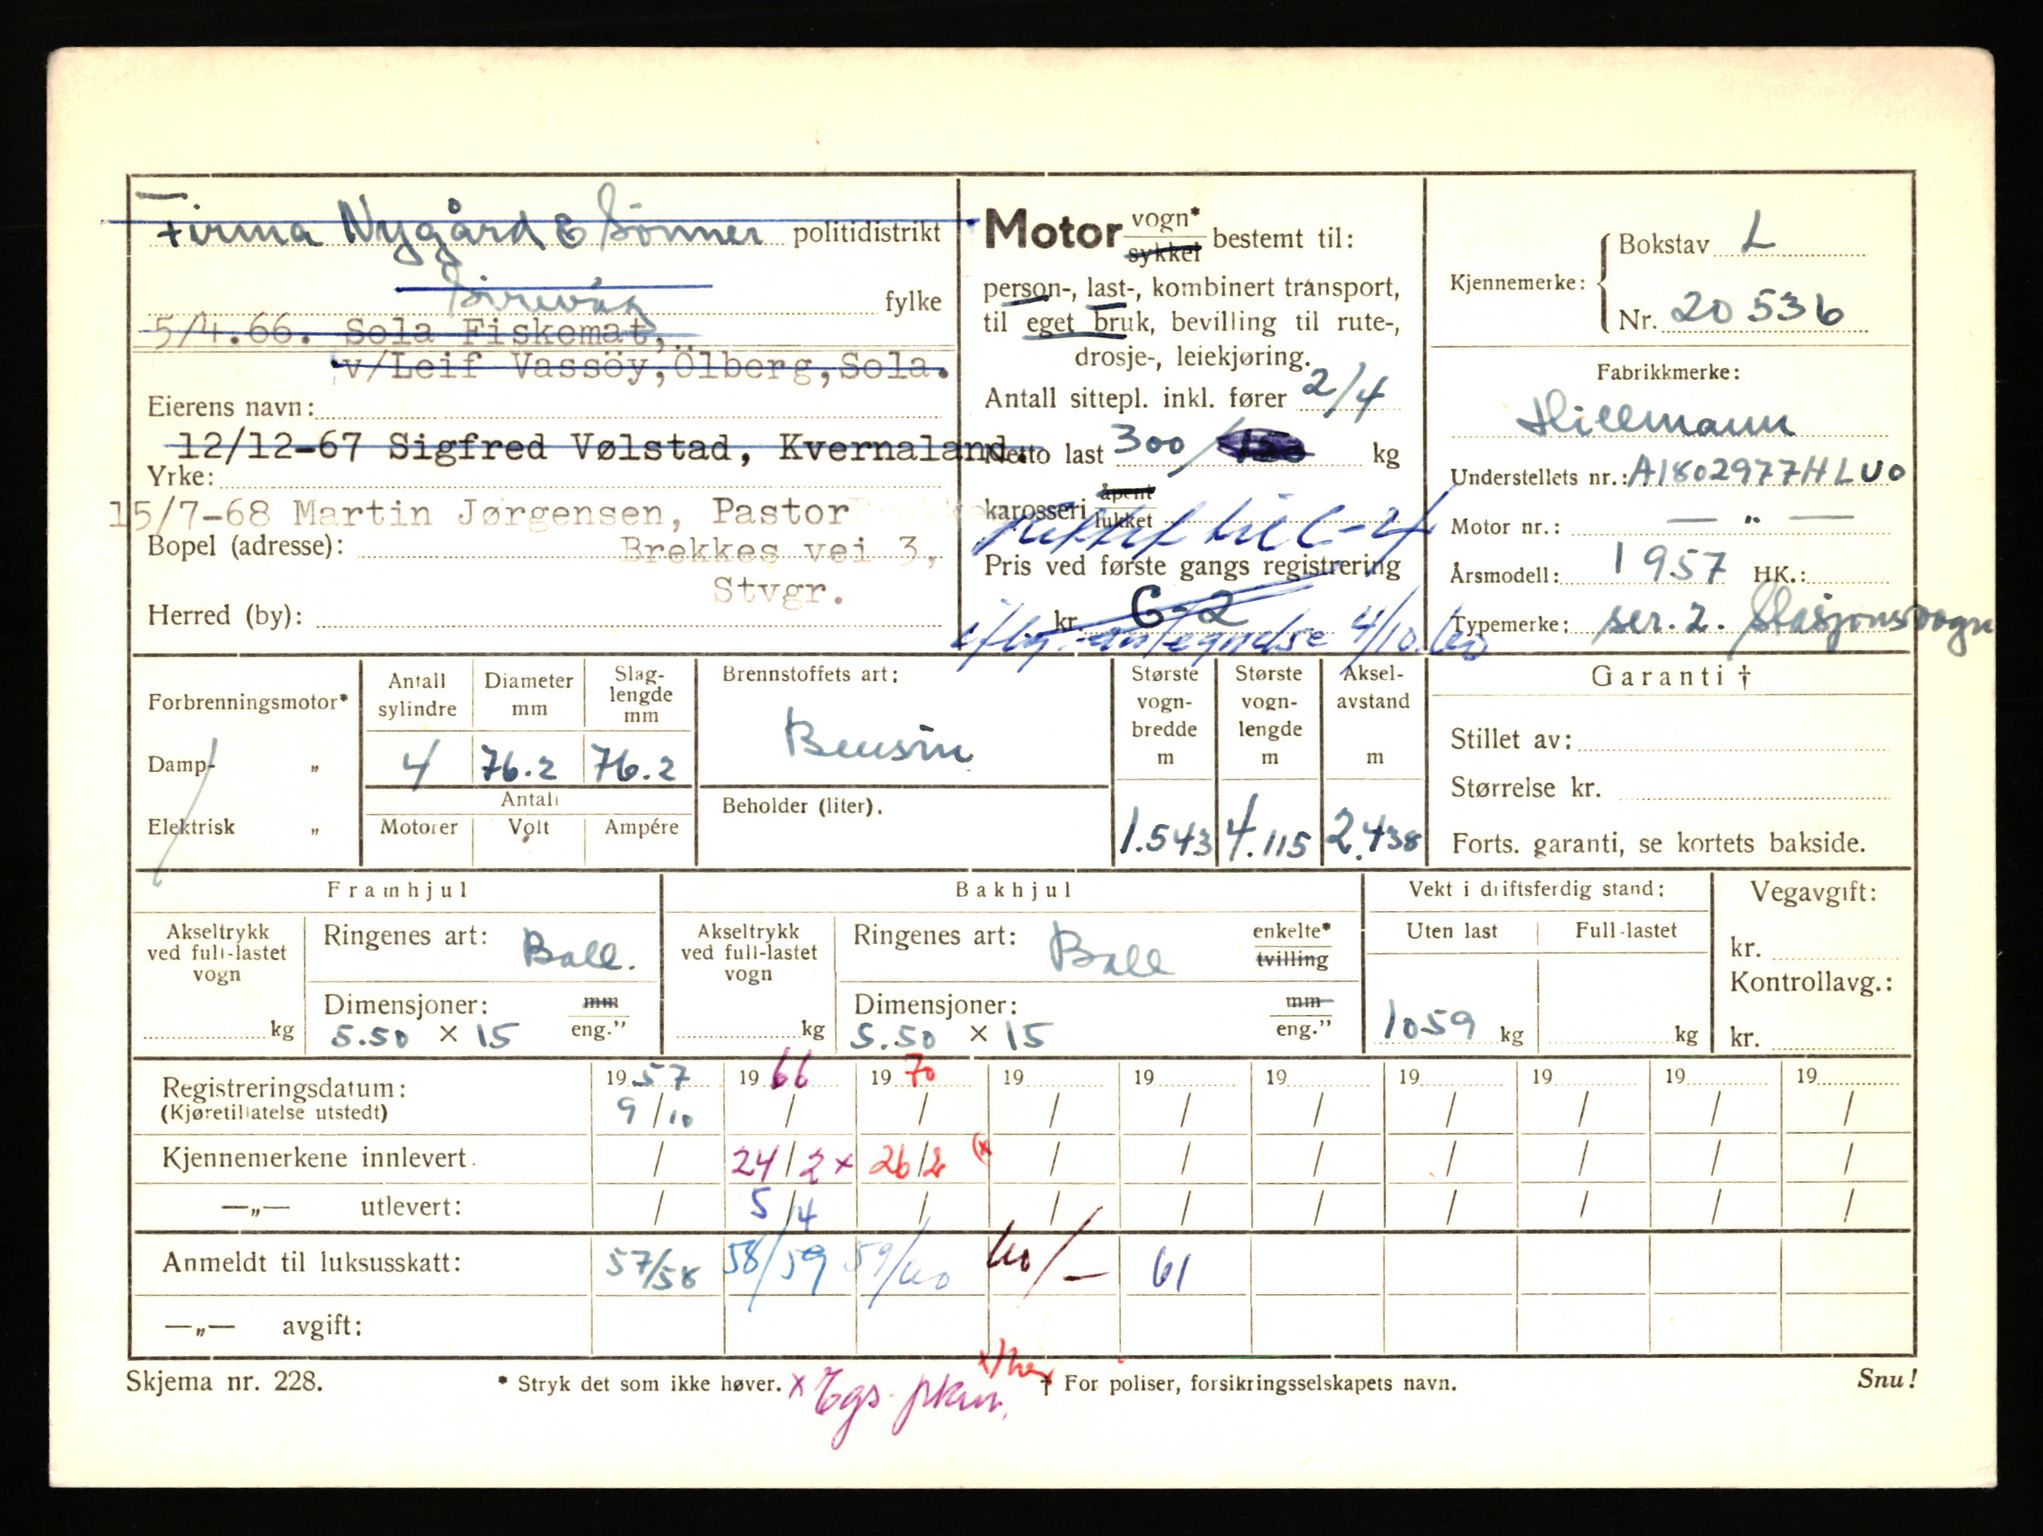 Firma Nygård & Sønner politidistrikt
Sirevåg fylke
5/4.66. Sola Fiskemat,
v/Leif Vassöy, Ölberg, Sola.
Eierens navn:
12/12-67 Sigfred Vølstad, Kvernaland.
Yrke:
15/7-68 Martin Jørgensen, Pastor
Bopel (adresse): Brekkes vei 3,
Stvgr.
Herred (by):
Motor vogn* sykkel bestemt til:
person-, last-, kombinert transport,
til eget bruk, bevilling til rute-,
drosje-, leiekjøring.
Antall sittepl. inkl. fører 2/4
Netto last 300/ kg
karosseri åpent lukket
rettet til C-4
Pris ved første gangs registrering
kr. C-2
iflg. antegnelse 4/10.60
Kjennemerke: Bokstav L
Nr. 20536
Fabrikkmerke:
Hillmann
Understellets nr.: A1802977HLUO
Motor nr.: — „ —
Årsmodell: 1957 HK.:
Typemerke: ser. 2. Stasjonsvogn
Forbrenningsmotor*
Damp- „
Elektrisk „
Antall sylindre Diameter mm Slag-lengde mm
4 76.2 76.2
Antall
Motorer Volt Ampére
Brennstoffets art:
Bensin
Beholder (liter).
Største vogn-bredde m Største vogn-lengde m Aksel-avstand m
1.543 4.115 2.438
Garanti †
Stillet av:
Størrelse kr.
Forts. garanti, se kortets bakside.
Framhjul
Akseltrykk ved full-lastet vogn
kg
Ringenes art: Ball.
Dimensjoner: mm
5.50 × 15 eng.”
Bakhjul
Akseltrykk ved full-lastet vogn
kg
Ringenes art: Ball enkelte* tvilling
Dimensjoner: mm
5.50 × 15 eng.”
Vekt i driftsferdig stand:
Uten last Full-lastet
1059 kg kg
Vegavgift:
kr.
Kontrollavg.:
kr.
Registreringsdatum: 1957 1966 1970 19 19 19 19 19 19 19
(Kjøretillatelse utstedt) 9/10 / / / / / / / / /
Kjennemerkene innlevert. / 24/2 x 26/2 (x / / / / / / /
—„— utlevert: / 5/4 / / / / / / / /
Anmeldt til luksusskatt: 57/58 58/59 59/60 60/— 61
—„— avgift:
Skjema nr. 228. * Stryk det som ikke høver. x † For poliser, forsikringsselskapets navn. Snu!